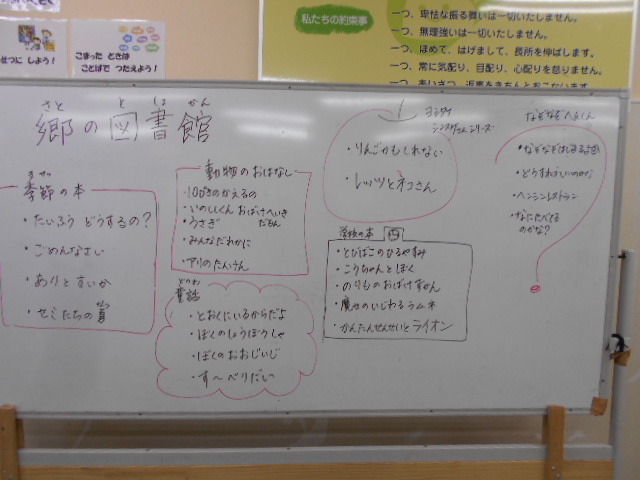 せつに しよう！
こまった ときは
ことばで つたえよう！
私たちの約束事
一つ、卑怯な振る舞いは一切いたしません。
一つ、無理強いは一切いたしません。
一つ、ほめて、はげまして、長所を伸ばします。
一つ、常に気配り、目配り、心配りを怠りません。
さと と しょ かん
郷の図書館
季節の本
・たいふう どうするの？
・ごめんなさい
・ありとすいか
・セミたちの夏
動物のおはなし
・10ぴきのかえるの
・いのししくん おばけへいき
だもん
・うさぎ
・みんなだれかに
・アリのたんけん
童話
・とおくにいるからだよ
・ぼくのしょうぼうしゃ
・ぼくのおおじいじ
・す〜べりだい
ヨシタケ
シンスケさんシリーズ
・りんごかもしれない
・レッツとネコさん
学校の本
・とびばこのひるやすみ
・こうちゃんとぼく
・のりものおばけずかん
・魔女のいじわるラムネ
・かんたんせんせいとライオン
なぞなぞ
・どうすればいいのかな
・ヘンシンレストラン
・なにたべてる
のかな？